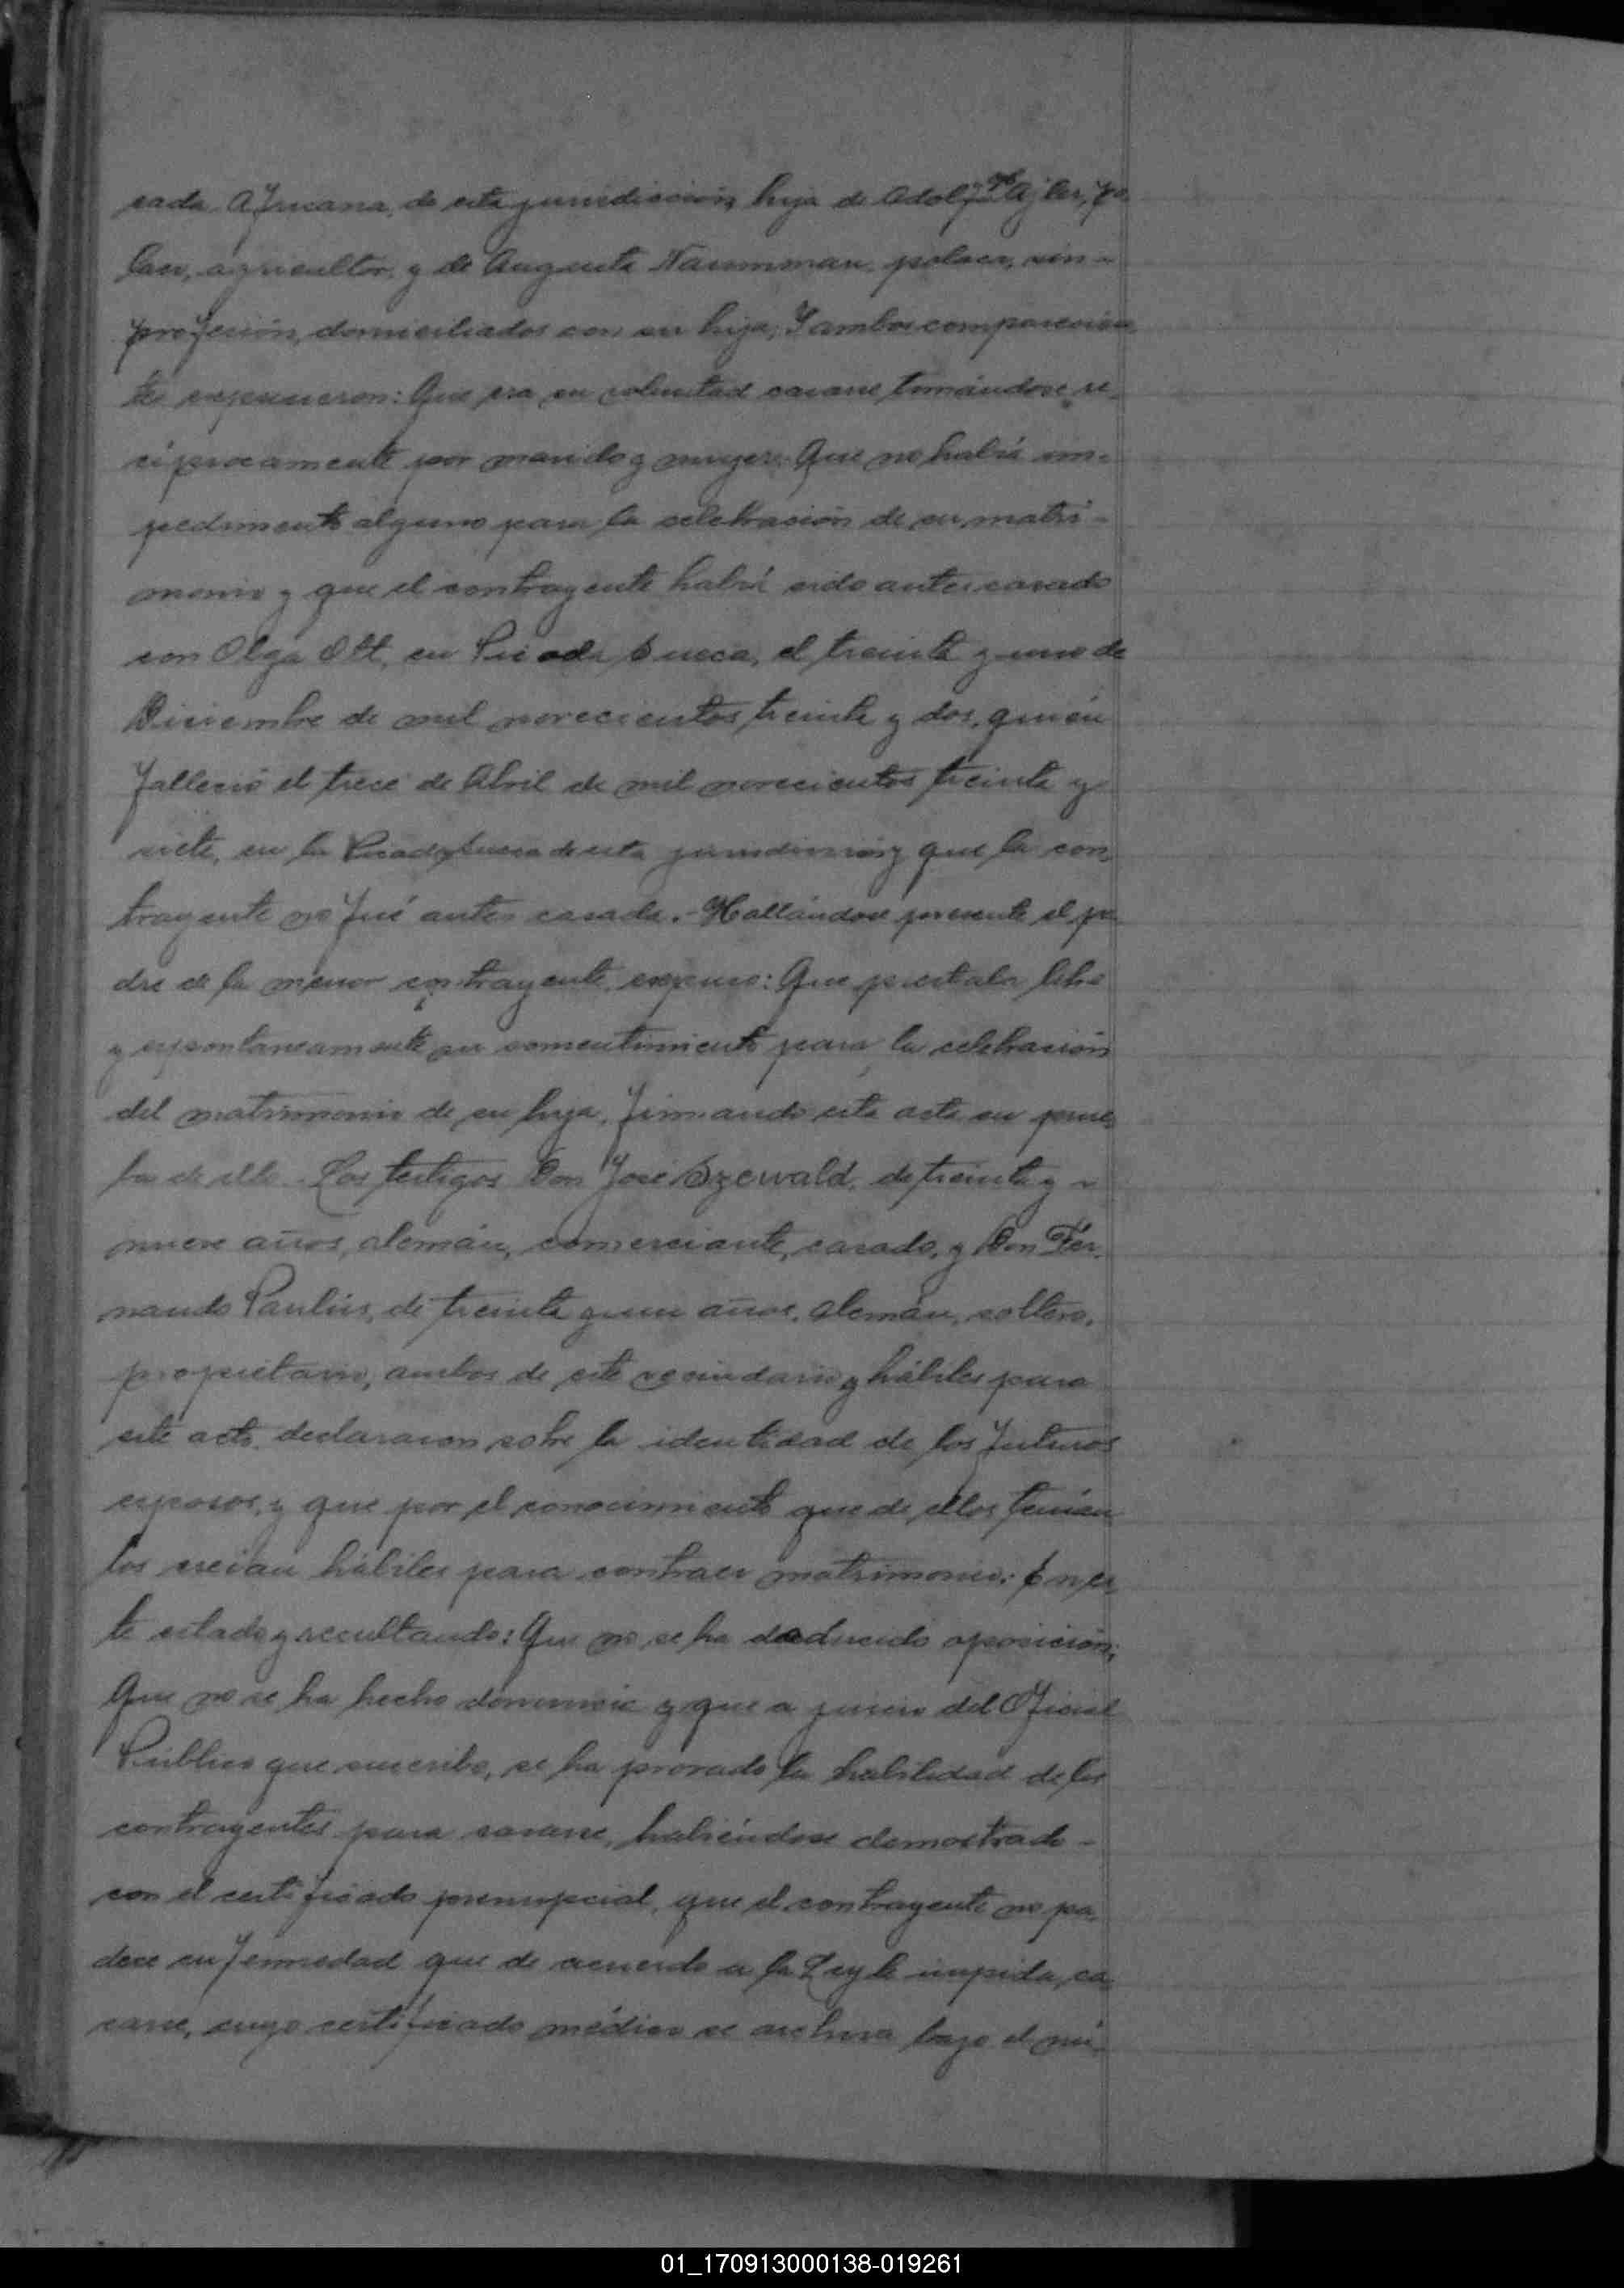 cada Africana, de esta jurisdicción, hija de Adolfo Ajler, po-
laco, agricultor, y de Augusta Naumman, polaca, sin-
profesión, domiciliados con su hija; Y ambos comparecien
tes expusieron: Que era su voluntad casarse tomándose re-
cíprocamente por marido y mujer: Que no había im-
pedimento alguno para la celebración de su matri-
monio y que el contrayente había sido antes casado
con Olga Ott, en Picada Sueca, el treinta y uno de
Diciembre de mil novecientos treinta y dos, quién
falleció el trece de Abril de mil novecientos treinta y
siete, en la Picada Sueca de esta jurisdicción y que la con
trayente no fué antes casada.- Hallándose presente el pa
dre de la menor contrayente, expuso: Que prestaba libre
y espontaneamente su consentimiento para la celebración
del matrimonio de su hija, firmando esta acta en prue
ba de ello.- Los testigos Don José Szewald, de treinta y -
nueve años, alemán, comerciante, casado, y Don Fer-
nando Paulus, de treinta y un años, alemán, soltero,
propietario, ambos de este vecindario y hábiles para
este acto, declararon sobre la identidad de los futuros
esposos, y que por el conocimiento que de ellos tenían
los creían hábiles para contraer matrimonio: En es
te estado y resultando: Que no se ha deducido oposición;
Que no se ha hecho denuncia y que a juicio del Oficial
Público que suscribe, se ha provado la habilidad de los
contrayentes para casarse, habiéndose demostrado -
con el certificado prenupcial, que el contrayente no pa-
dece enfermedad que de acuerdo a la Ley le impida ca-
sarse, cuyo certificado médico se archiva bajo el nú-
01_170913000138-019261